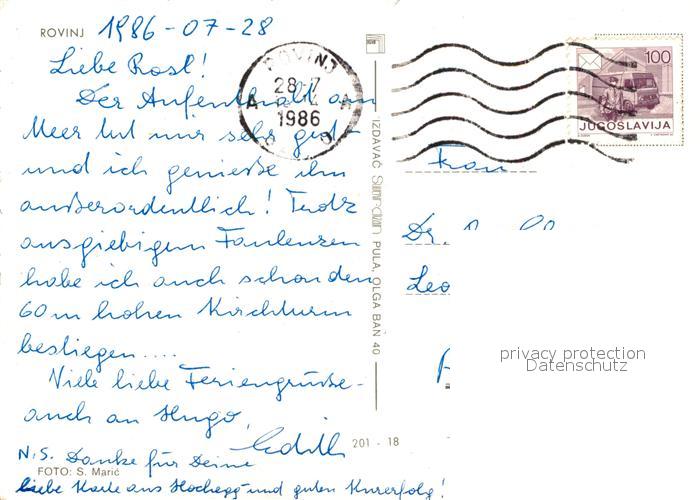 ROVINJ 1986-07-28
Liebe Rosl!
Der Aufenthalt am
Meer tut mir sehr gut -
und ich genieße ihn
außerordentlich! Trotz
ausgiebigem Faulenzen
habe ich auch schon den
60 m hohen Kirchturm
bestiegen....
Viele liebe Feriengrüße -
auch an Hugo,
Edith
N.S. Danke für Deine
liebe Karte aus Hochegg und guten Kurerfolg!
FOTO: S. Marić
201 - 18
IZDAVAČ PULA, OLGA BAN 40
ROVINJ
28-7
1986
100
JUGOSLAVIJA
Frau
Dr.
Leo
privacy protection
Datenschutz